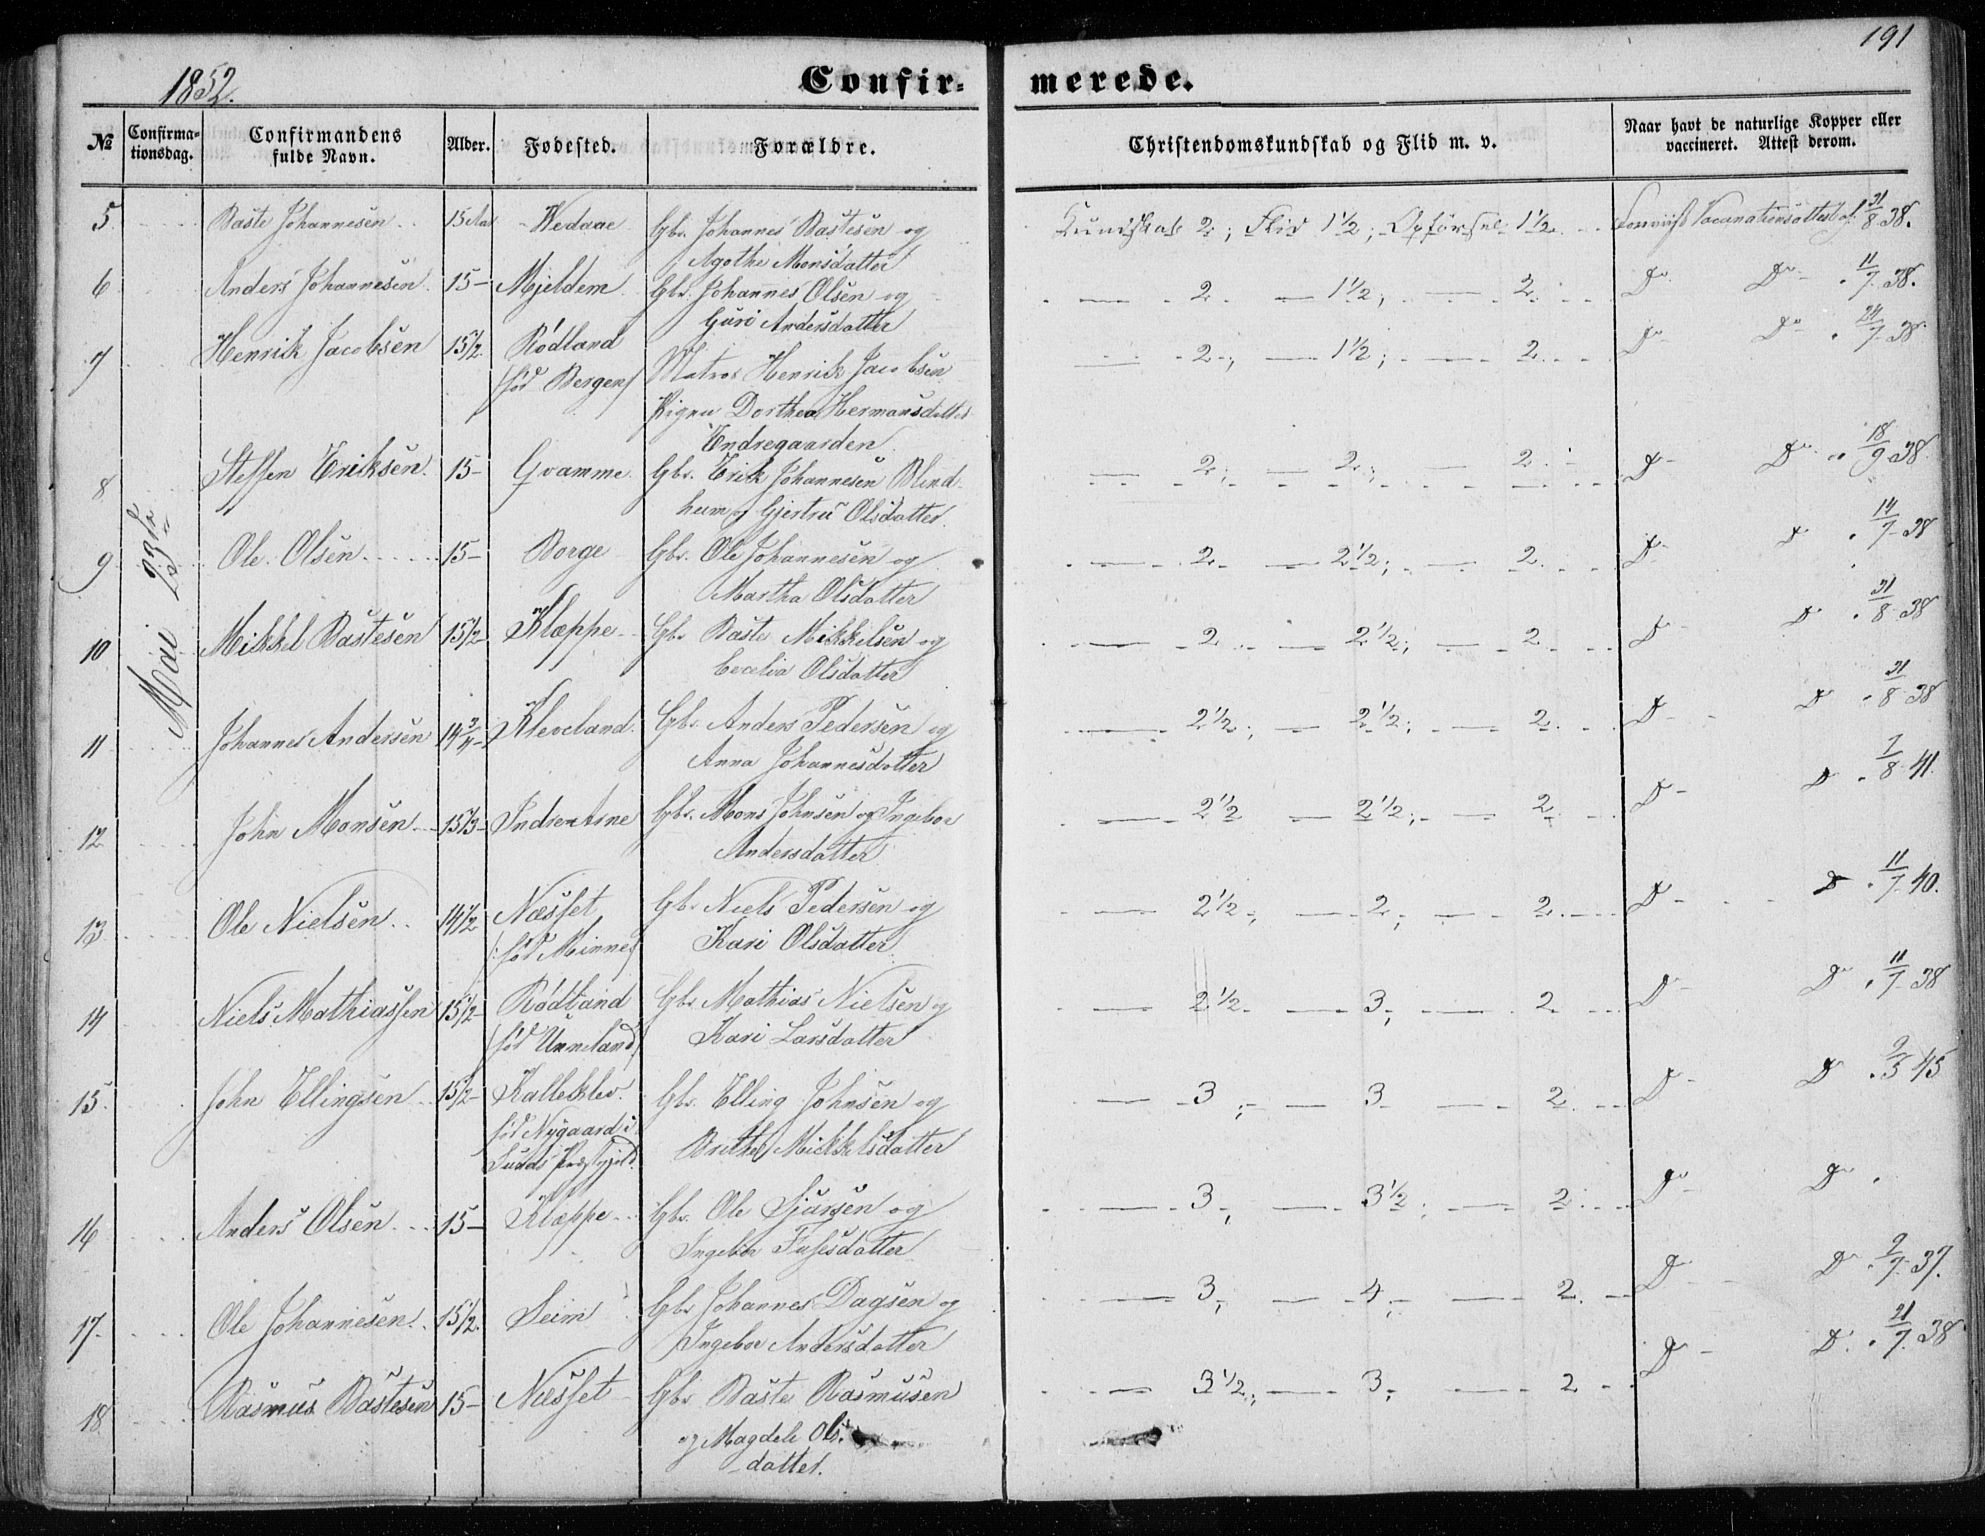 191
1852.
Confir- merede.
№ Confirma-tionsdag. Confirmandens fulde Navn. Alder. Fødested. Forældre. Christendomskundskab og Flid m. v. Naar havt de naturlige Kopper eller vaccineret. Attest derom.
Mai 23de
5 Baste Johannesen 15 Aar Wedaae Gbr. Johannes Bastesen og Kundskab 2; Flid 1½; Opførsel 1½ Vacinationsattest af 31/8 38.
Agothe Monsdatter
6 Anders Johannesen 15 Mjeldem Gbr. Johannes Olsen og — 2 — 1½; — 2 Do Do 11/7 38.
Guri Andersdatter
7 Henrik Jacobsen 15½ Rødland Matros Henrik Jacobsen — 2; — 1½; — 2 Do Do 24/7 38
(fød Bergen) Pigen Dorthea Hermansdatter
Endregaarden
8 Steffen Eriksen 15 Gvamme Gbr. Erik Johannesen Blind- — 2; — 2; — 2 D D 18/9 38
heim og Gjertru Olsdatter
9 Ole Olsen 15 Borge Gbr. Ole Johannesen og — 2 — 2½; — 2 D D 14/7 38
Martha Olsdatter
10 Mikkel Bastesen 15½ Klæppe Gbr Baste Mikkelsen og — 2 — 2½; — 2 D D 31/8 38
Cecelia Olsdatter
11 Johannes Andersen 14¾ Kleveland Gbr. Anders Pedersen og — 2½; — 2½; — 2 D D 31/8 38
Anna Johannesdatter
12 John Monsen 15⅓ Indre Arne Gbr. Mons Johnsen og Ingebor — 2½ — 2½; — 2 D D 7/8 41.
Andersdatter
13 Ole Nielsen 14½ Næsset Gbr Niels Pedersen og — 2½; — 2; — 2 D D 11/7 40.
(: fød Minne) Kari Olsdatter
14 Niels Mathiassen 15½ Rødland Gbr Mathias Nielsen og — 2½ — 3; — 2 D D 11/7 38
(fød Unneland) Kari Larsdatter
15 John Ellingsen 15½ Kalleklev Gbr. Elling Johnsen og — 3; — 3 — 2 D D 2/3 45
fød Nygaard i Brithe Mikkelsdatter
Sunds Præstgjeld
16 Anders Olsen 15 Klæppe Gbr. Ole Sjursen og — 3; — 3½; — 2 D D
Ingebor Fusesdatter
17 Ole Johannesen 15½ Seim Gbr Johannes Dagsen og — 3; — 4; — 2 D D 2/7 37.
Ingebor Andersdatter
18 Rasmus Bastesen 15 Næsset Gbr Baste Rasmusen — 3½; — 3; — 2 D D 21/7 38
og Magdele Ols-
datter.